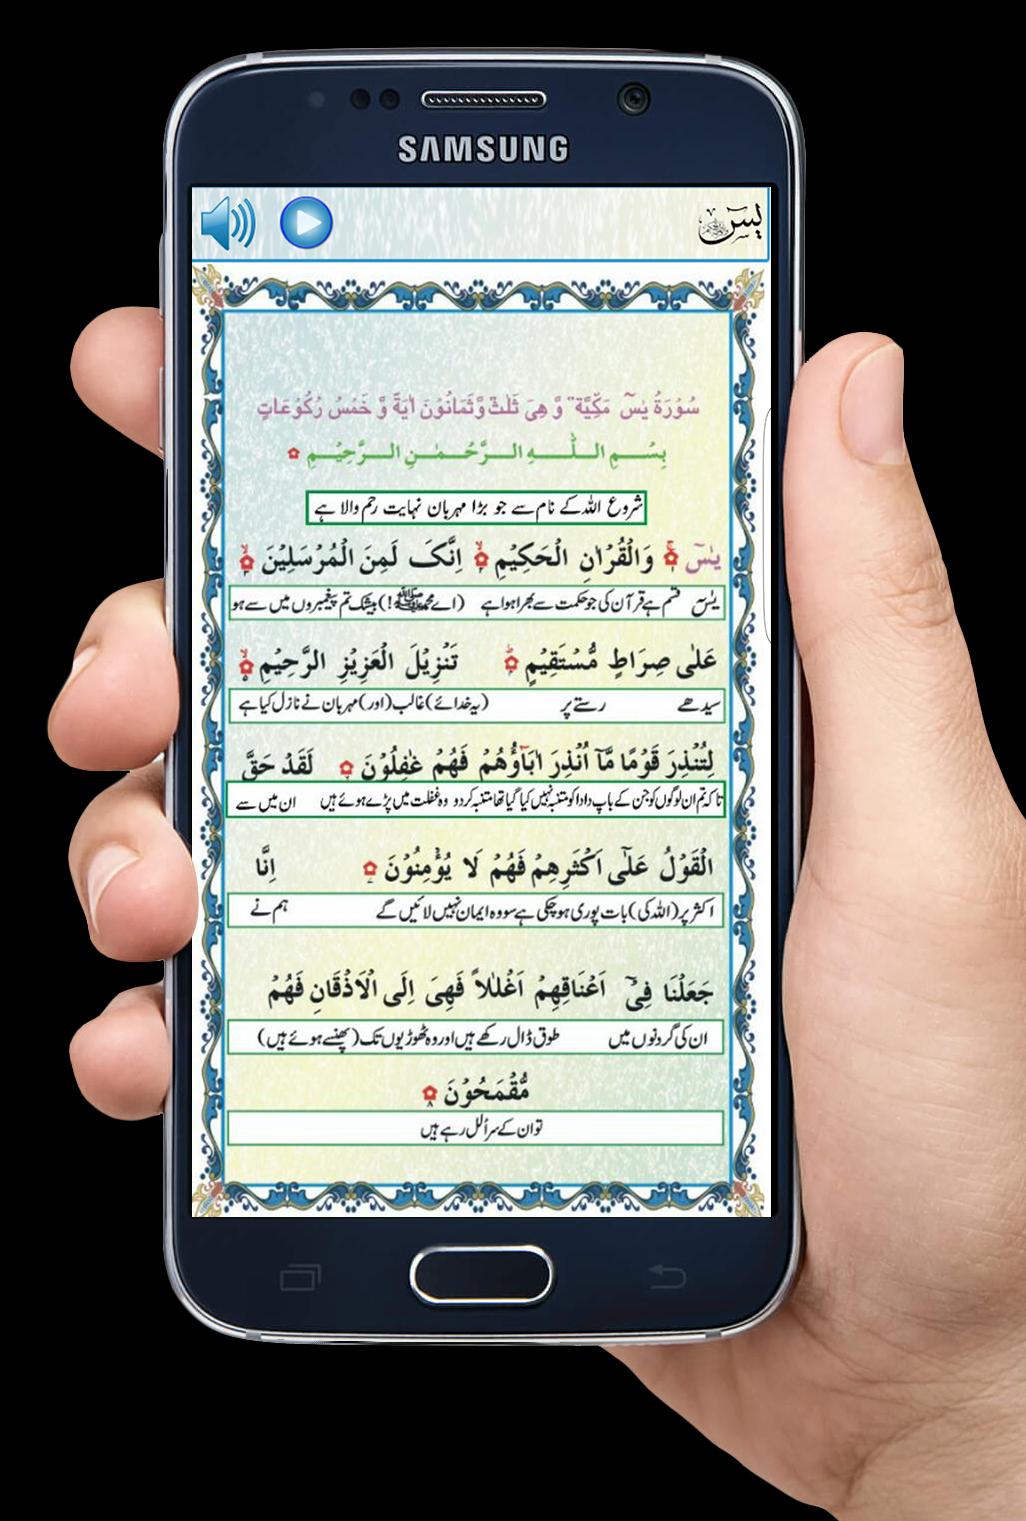 SAMSUNG
یٰسٓ
سُوْرَةُ یٰسٓ مَكِّيَّةٌ وَّ هِیَ ثَلٰثٌ وَّثَمَانُوْنَ اٰیَةً وَّ خَمْسُ رُكُوْعَاتٍ
بِسْمِ اللّٰهِ الرَّحْمٰنِ الرَّحِیْمِ
شروع اللہ کے نام سے جو بڑا مہربان نہایت رحم والا ہے
یٰسٓ ۚ‏۱ وَالْقُرْاٰنِ الْحَکِیْمِ ۙ‏۲ اِنَّکَ لَمِنَ الْمُرْسَلِیْنَ ۙ‏۳
یٰسٓ قسم ہے قرآن کی جو حکمت سے بھرا ہوا ہے (اے محمد ﷺ!) بیشک تم پیغمبروں میں سے ہو
عَلٰی صِرَاطٍ مُّسْتَقِیْمٍ ؕ‏۴ تَنْزِیْلَ الْعَزِیْزِ الرَّحِیْمِ ۙ‏۵
سیدھے رستے پر (یہ خدائے) غالب (اور) مہربان نے نازل کیا ہے
لِتُنْذِرَ قَوْمًا مَّاۤ اُنْذِرَ اٰبَآؤُهُمْ فَهُمْ غٰفِلُوْنَ ۶ لَقَدْ حَقَّ
تاکہ تم ان لوگوں کو جن کے باپ دادا کو متنبہ نہیں کیا گیا تھا متنبہ کر دو وہ غفلت میں پڑے ہوئے ہیں ان میں سے
الْقَوْلُ عَلٰۤی اَکْثَرِهِمْ فَهُمْ لَا یُؤْمِنُوْنَ ۷ اِنَّا
اکثر پر (اللہ کی) بات پوری ہو چکی ہے سو وہ ایمان نہیں لائیں گے ہم نے
جَعَلْنَا فِیْۤ اَعْنَاقِهِمْ اَغْلٰلاً فَهِیَ اِلَی الْاَذْقَانِ فَهُمْ
ان کی گردنوں میں طوق ڈال رکھے ہیں اور وہ ٹھوڑیوں تک (پھنسے ہوئے ہیں)
مُّقْمَحُوْنَ ۸
تو ان کے سر اُلل رہے ہیں